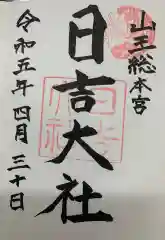 山王総本宮
日吉大社
令和五年四月三十日